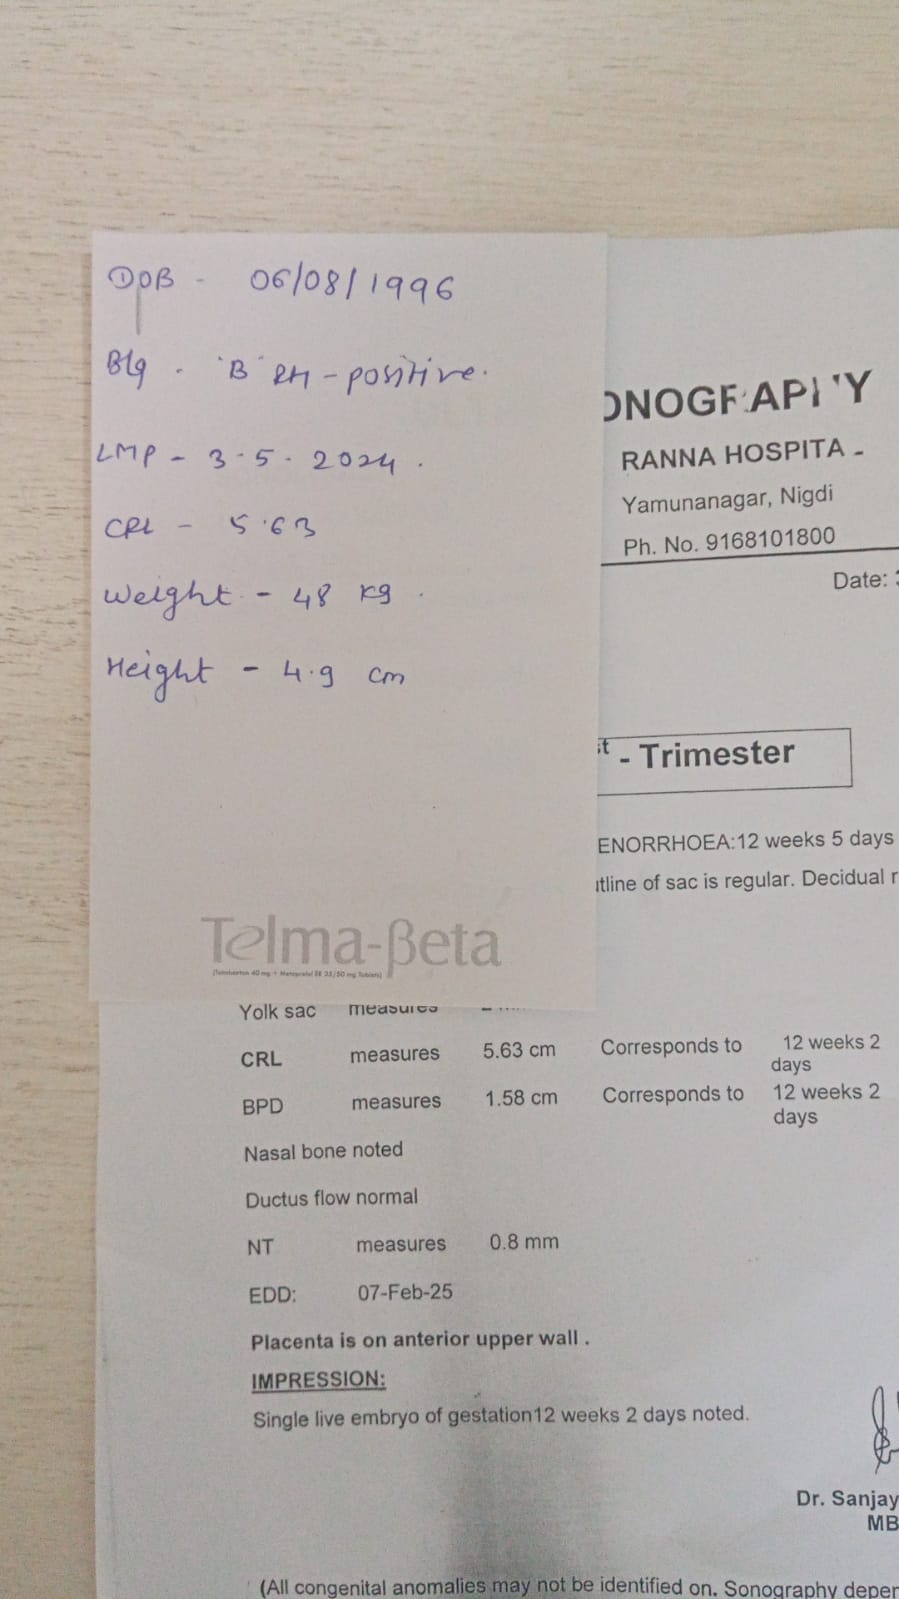 DOB - 06/08/1996
Blg. "B" RH - positive.
LMP - 3.5.2024.
CRL - 5.63
Weight - 48 kg.
Height - 4.9 cm
Telma-βeta
RANNA HOSPITA
Yamunanagar, Nigdi
Ph. No. 9168101800
Date:
st - Trimester
ENORRHOEA:12 weeks 5 days
line of sac is regular. Decidual r
Yolk sac measures
CRL measures 5.63 cm Corresponds to 12 weeks 2 days
BPD measures 1.58 cm Corresponds to 12 weeks 2 days
Nasal bone noted
Ductus flow normal
NT measures 0.8 mm
EDD: 07-Feb-25
Placenta is on anterior upper wall .
IMPRESSION:
Single live embryo of gestation12 weeks 2 days noted.
Dr. Sanjay
MB
(All congenital anomalies may not be identified on. Sonography depen